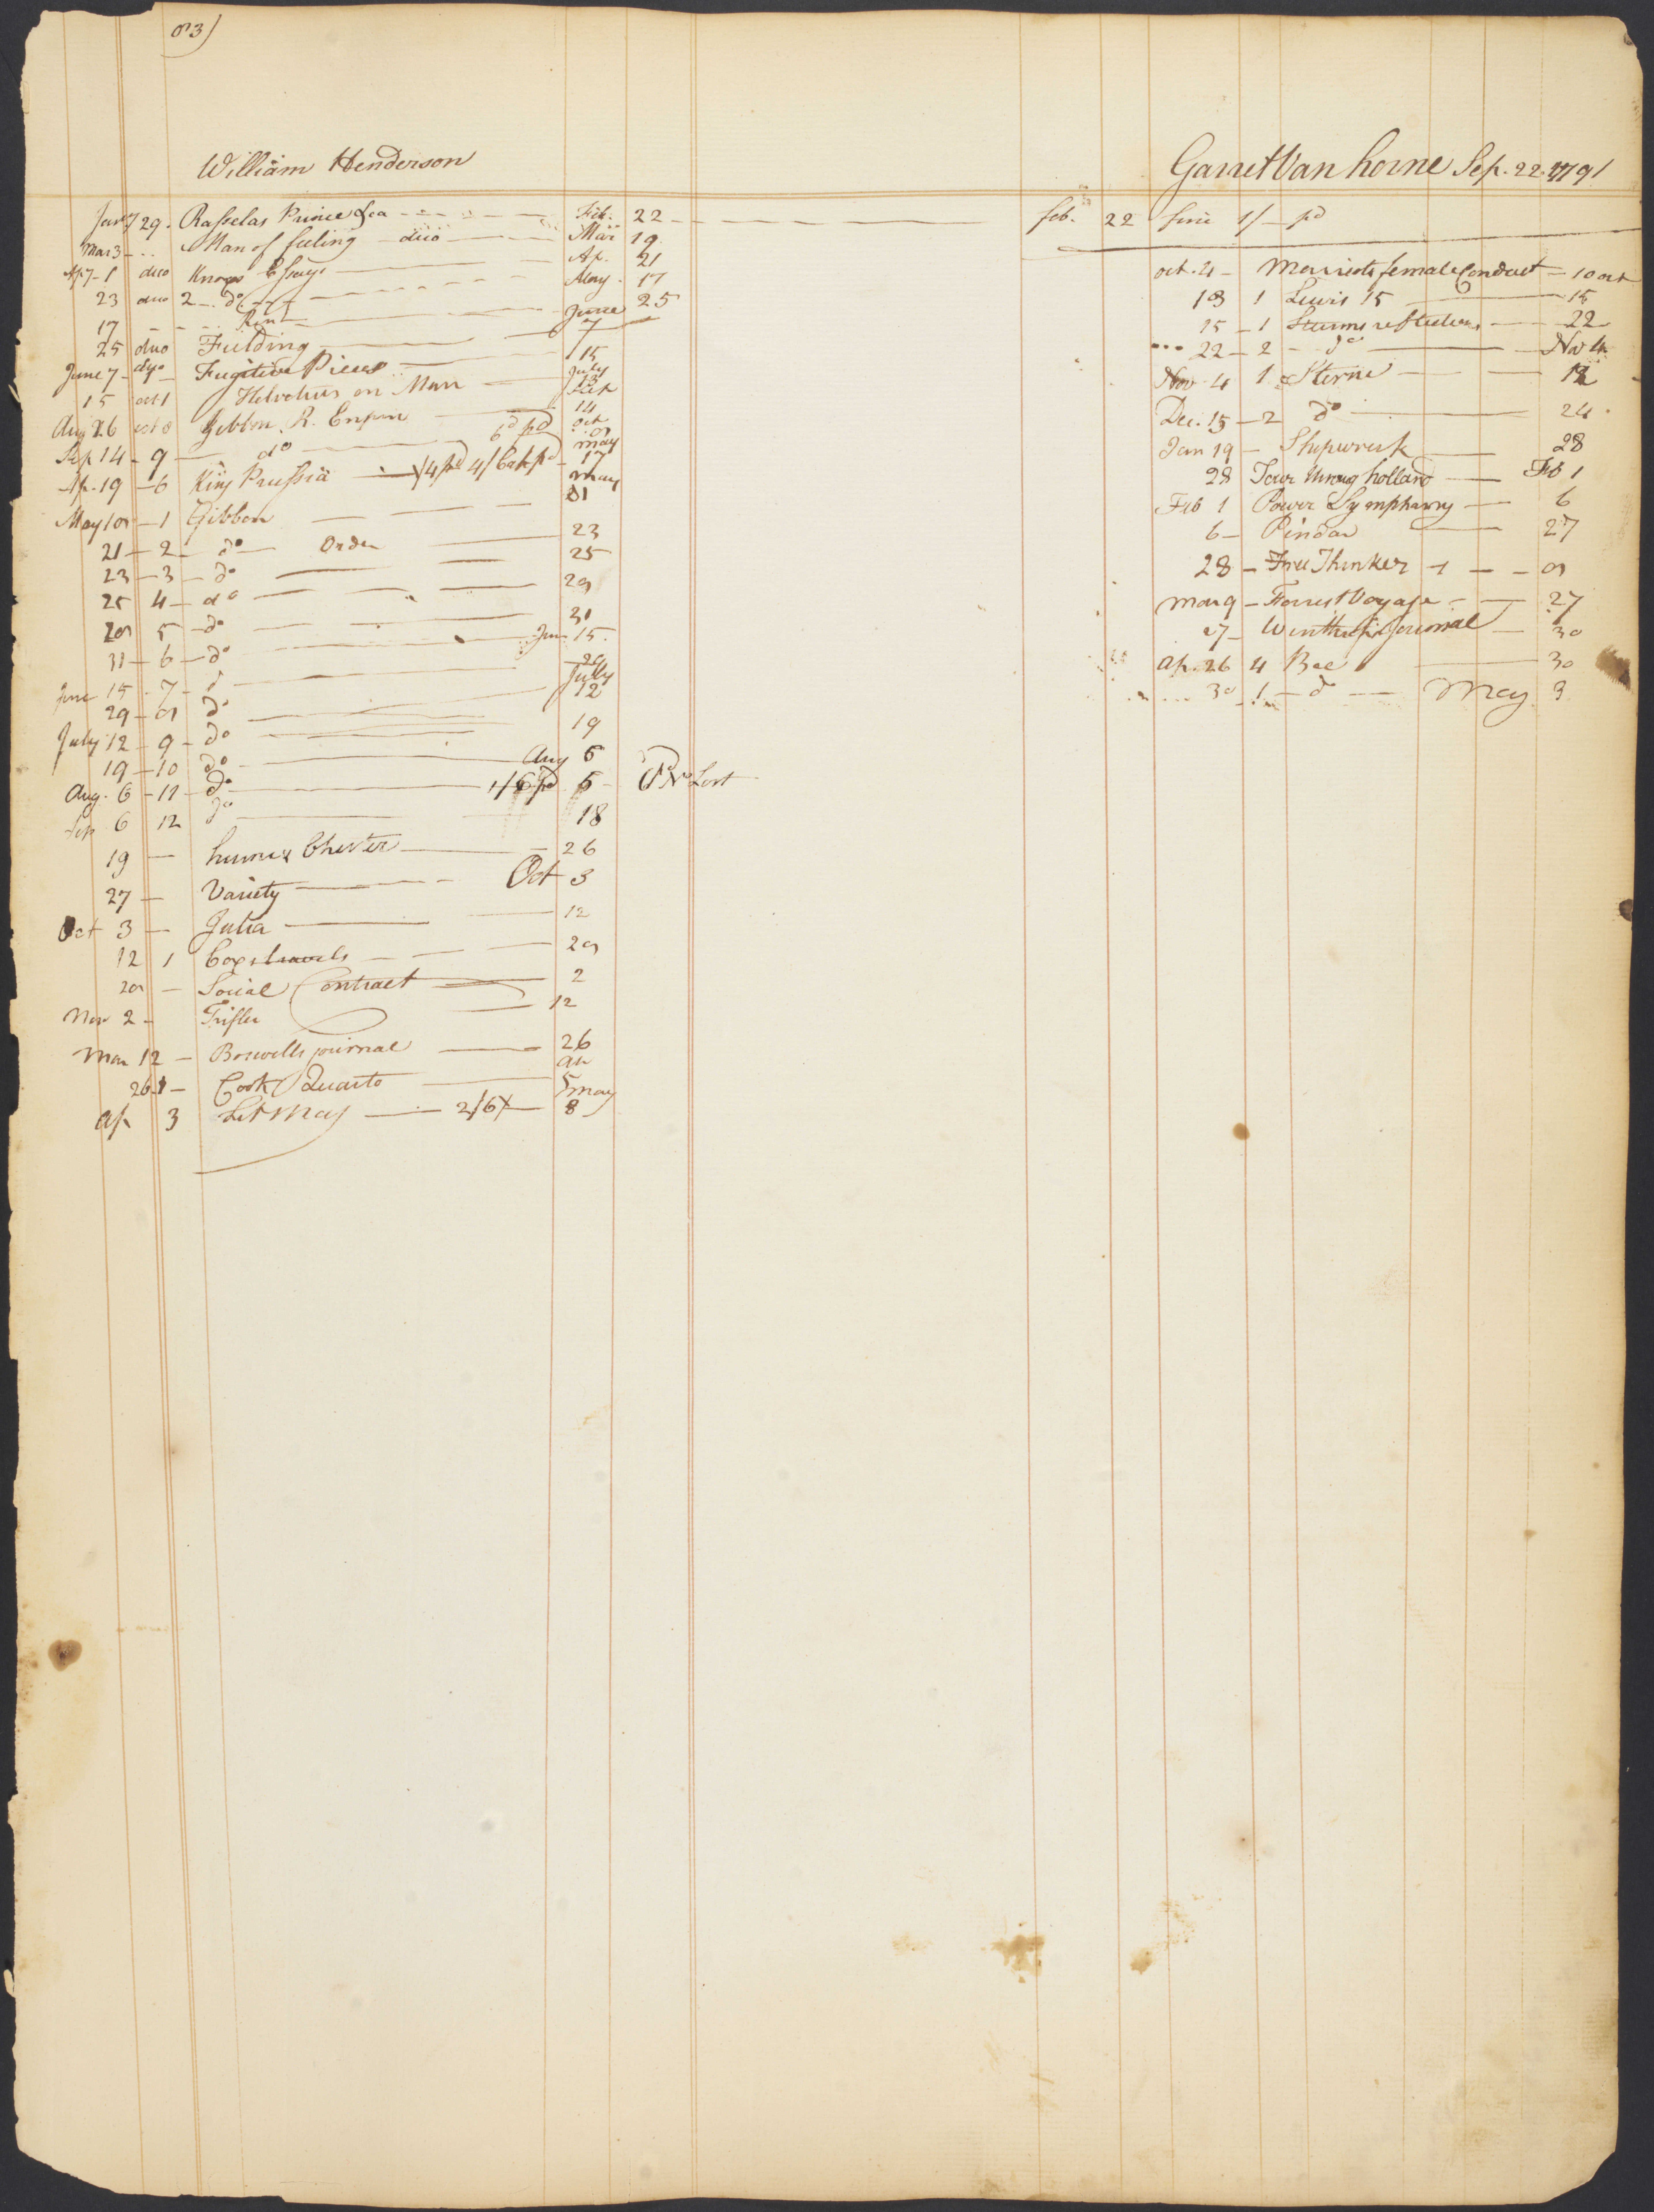 83)
William Henderson
Jany 29. Rasselas Prince &ca Feb. 22
Mar 3 Man of feeling duo Mar 19
Ap. 7 1 duo Knoxs Essays Ap. 21
23 duo 2 do May 17
17 June 25
25 duo Fielding 7
June 7 dyo Fugitive Pieces 15
15 oct 1 Helvetius on Man July 13
Aug 26 oct 8 Gibbon R. Empr Sep 14
Sep 14 9 do 6d pd oct 8
Ap. 19 6 King Prussia 4/6 pd may 17
May 18 1 Gibbon may 21
21 2 do Order 23
23 3 do 25
25 4 do 28
28 5 do 31
31 6 do Jun 15
June 15 7 d 29
29 8 do July 12
July 12 9 do 19
19 10 do Aug 6
Aug. 6 11 do 1/6 pd 5 Lost
Sep 6 12 do 18
19 Chester 26
27 Variety Oct 3
Oct 3 Julia 12
12 1 Coxs travels 28
28 Social Contract 2
Nov 2 Trifler 12
Mar 12 Boswells journal 26
26 1 Cook Quarto ap 5
Ap 3 Lit Mag 2/6 may 8
Garret Van horne Sep. 22. 1791
feb. 22 fine 1/ pd
oct. 4 Marriotts female Conduct 10 oct
13 1 Lewis 15 15
15 1 Sturms reflections 22
22 2 do Nov 4
Nov 4 1 Sterne 12
Dec. 15 2 do 24
Jan 19 Shipwreck 28
28 Tour throug holland Feb 1
Feb 1 Power Symphathy 6
6 Pindar 27
28 Free Thinker 1 8
mar 9 Forrest Voyage 27
27 Winthrop journal 30
Ap. 26 4 Bee 30
30 1 d May 9